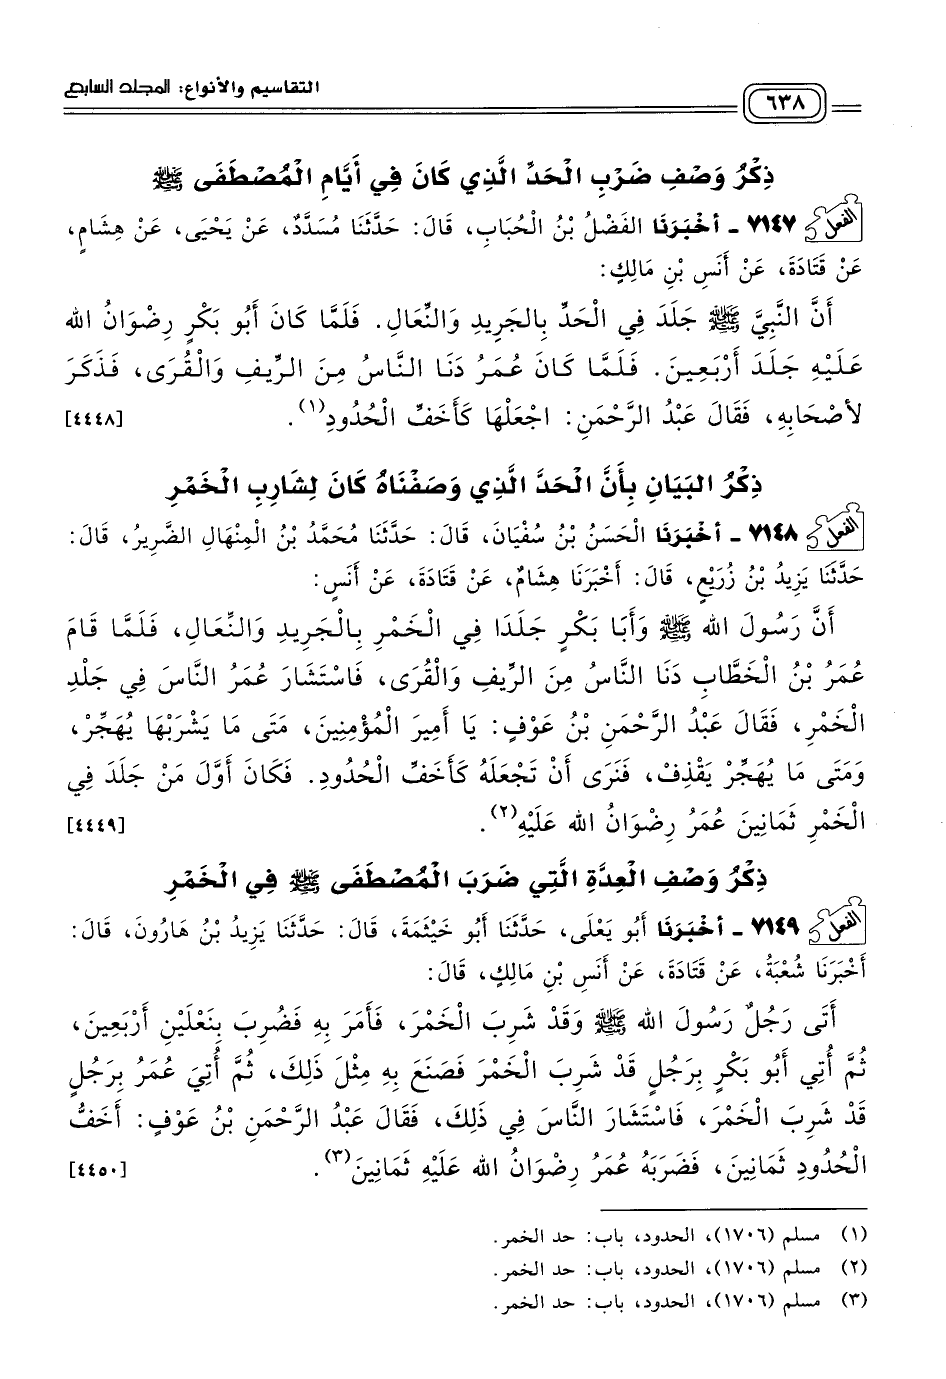 التقاسيم والأنواع: المجلد السابع
٦٣٨
ذِكْرُ وَصْفِ ضَرْبِ الْحَدِّ الَّذِي كَانَ فِي أَيَّامِ الْمُصْطَفَى ﷺ
الفعل ٧١٤٧ - أَخْبَرَنَا الفَضْلُ بْنُ الْحُبَابِ، قَالَ: حَدَّثَنَا مُسَدَّدٌ، عَنْ يَحْيَى، عَنْ هِشَامٍ،
عَنْ قَتَادَةَ، عَنْ أَنَسِ بْنِ مَالِكٍ:
أَنَّ النَّبِيَّ ﷺ جَلَدَ فِي الْحَدِّ بِالجَرِيدِ وَالنِّعَالِ. فَلَمَّا كَانَ أَبُو بَكْرٍ رِضْوَانُ الله
عَلَيْهِ جَلَدَ أَرْبَعِينَ. فَلَمَّا كَانَ عُمَرُ دَنَا النَّاسُ مِنَ الرِّيفِ وَالْقُرَى، فَذَكَرَ
لأَصْحَابِهِ، فَقَالَ عَبْدُ الرَّحْمَنِ: اجْعَلْهَا كَأَخَفِّ الْحُدُودِ(١). [٤٤٤٨]
ذِكْرُ البَيَانِ بِأَنَّ الْحَدَّ الَّذِي وَصَفْنَاهُ كَانَ لِشَارِبِ الْخَمْرِ
الفعل ٧١٤٨ - أَخْبَرَنَا الْحَسَنُ بْنُ سُفْيَانَ، قَالَ: حَدَّثَنَا مُحَمَّدُ بْنُ الْمِنْهَالِ الضَّرِيرُ، قَالَ:
حَدَّثَنَا يَزِيدُ بْنُ زُرَيْعٍ، قَالَ: أَخْبَرَنَا هِشَامٌ، عَنْ قَتَادَةَ، عَنْ أَنَسٍ:
أَنَّ رَسُولَ الله ﷺ وَأَبَا بَكْرٍ جَلَدَا فِي الْخَمْرِ بِالْجَرِيدِ وَالنِّعَالِ، فَلَمَّا قَامَ
عُمَرُ بْنُ الْخَطَّابِ دَنَا النَّاسُ مِنَ الرِّيفِ وَالْقُرَى، فَاسْتَشَارَ عُمَرُ النَّاسَ فِي جَلْدِ
الْخَمْرِ، فَقَالَ عَبْدُ الرَّحْمَنِ بْنُ عَوْفٍ: يَا أَمِيرَ الْمُؤْمِنِينَ، مَتَى مَا يَشْرَبْهَا يُهَجِّرْ،
وَمَتَى مَا يُهَجِّرْ يَقْذِفْ، فَنَرَى أَنْ تَجْعَلَهُ كَأَخَفِّ الْحُدُودِ. فَكَانَ أَوَّلَ مَنْ جَلَدَ فِي
الْخَمْرِ ثَمَانِينَ عُمَرُ رِضْوَانُ الله عَلَيْهِ(٢). [٤٤٤٩]
ذِكْرُ وَصْفِ الْعِدَّةِ الَّتِي ضَرَبَ الْمُصْطَفَى ﷺ فِي الْخَمْرِ
الفعل ٧١٤٩ - أَخْبَرَنَا أَبُو يَعْلَى، حَدَّثَنَا أَبُو خَيْثَمَةَ، قَالَ: حَدَّثَنَا يَزِيدُ بْنُ هَارُونَ، قَالَ:
أَخْبَرَنَا شُعْبَةُ، عَنْ قَتَادَةَ، عَنْ أَنَسِ بْنِ مَالِكٍ، قَالَ:
أَتَى رَجُلٌ رَسُولَ الله ﷺ وَقَدْ شَرِبَ الْخَمْرَ، فَأَمَرَ بِهِ فَضُرِبَ بِنَعْلَيْنِ أَرْبَعِينَ،
ثُمَّ أُتِي أَبُو بَكْرٍ بِرَجُلٍ قَدْ شَرِبَ الْخَمْرَ فَصَنَعَ بِهِ مِثْلَ ذَلِكَ، ثُمَّ أُتِيَ عُمَرُ بِرَجُلٍ
قَدْ شَرِبَ الْخَمْرَ، فَاسْتَشَارَ النَّاسَ فِي ذَلِكَ، فَقَالَ عَبْدُ الرَّحْمَنِ بْنُ عَوْفٍ: أَخَفُّ
الْحُدُودِ ثَمَانِينَ، فَضَرَبَهُ عُمَرُ رِضْوَانُ الله عَلَيْهِ ثَمَانِينَ(٣). [٤٤٥٠]
(١) مسلم (١٧٠٦)، الحدود، باب: حد الخمر.
(٢) مسلم (١٧٠٦)، الحدود، باب: حد الخمر.
(٣) مسلم (١٧٠٦)، الحدود، باب: حد الخمر.